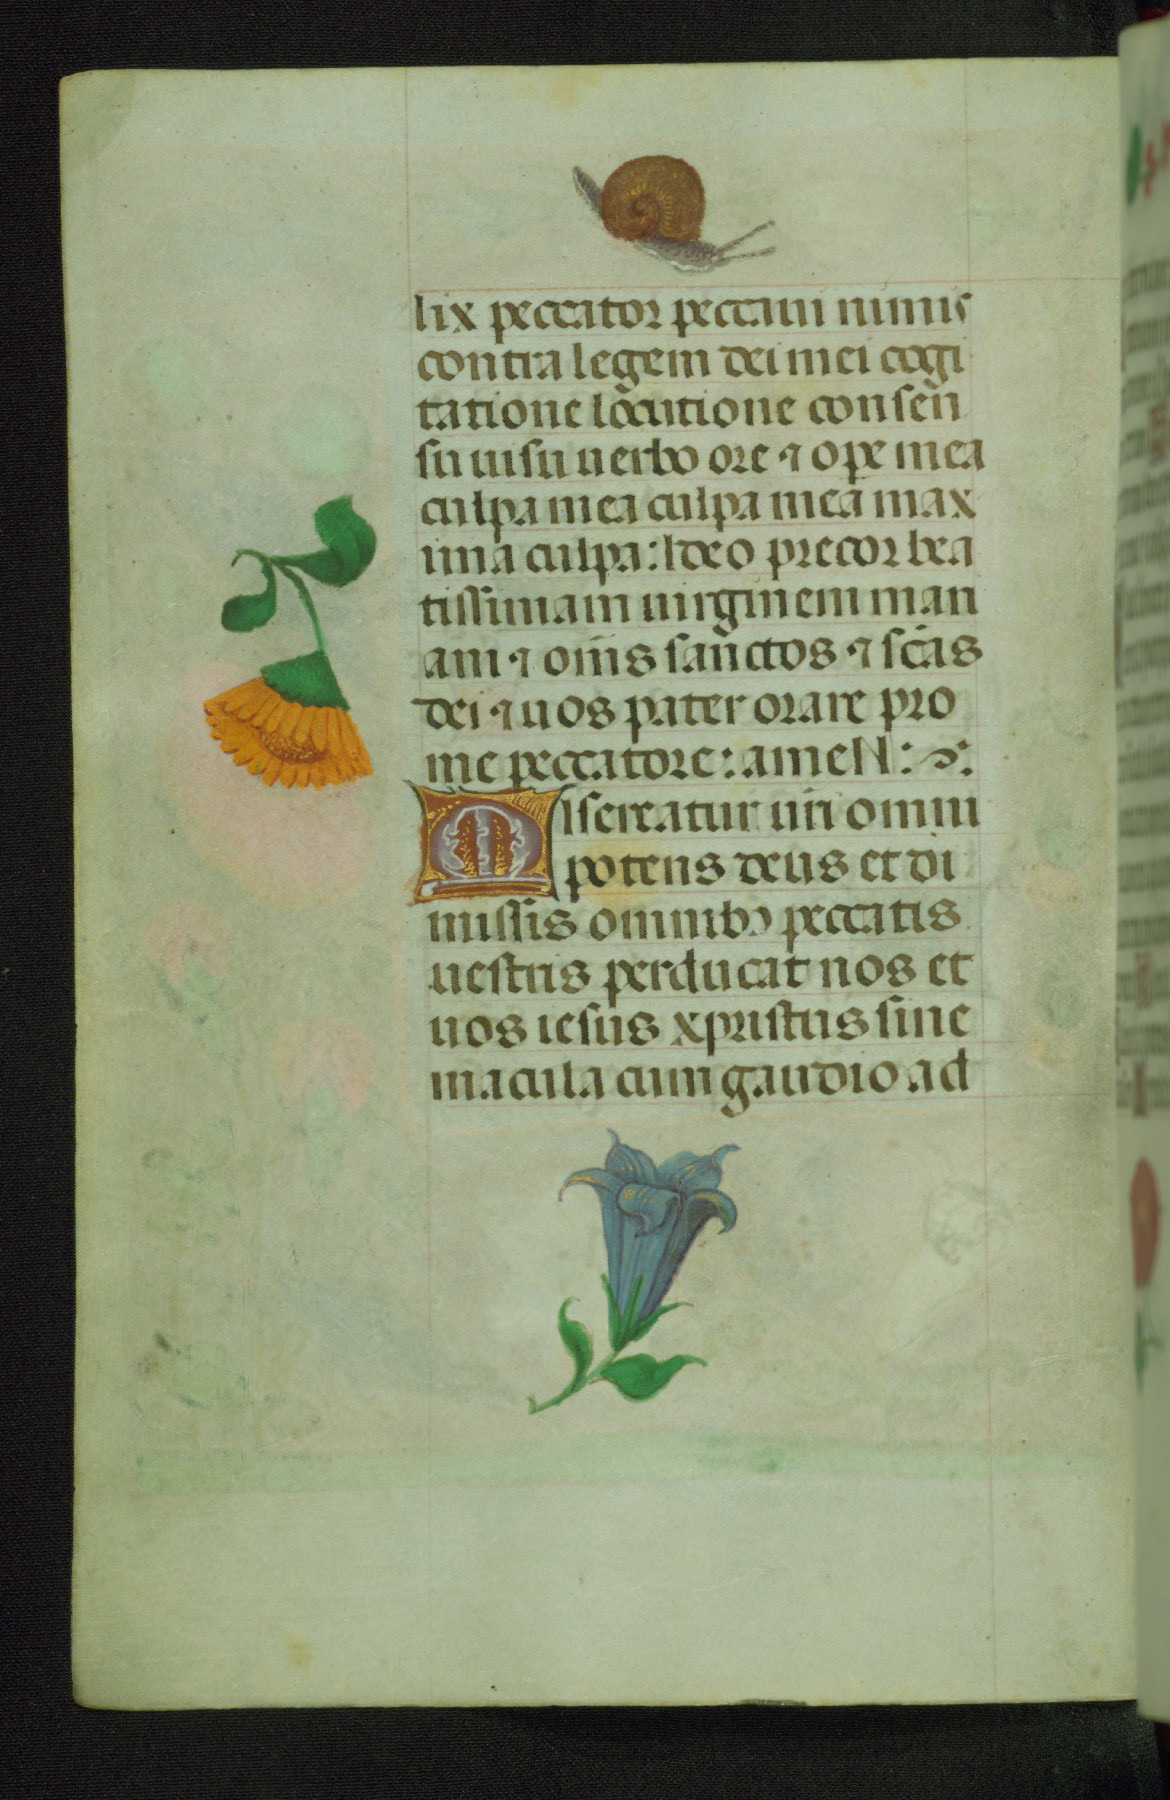 lix peccator peccaui nimis
contra legem dei mei cogi
tatione locutione consen̄
su uisu uerbo ore ⁊ ope mea
culpa mea culpa mea max
ima culpa: Ideo precor bea
tissimam uirginem mari
am ⁊ om̄s san̄ctos ⁊ sc̄as
dei ⁊ uos pater orare pro
me peccatore: ameN:
Misereatur uri omni
potens deus et di
missis omnibꝯ peccatis
uestris perducat nos et
uos iesus xpristus sine
macula cum gaudio ad